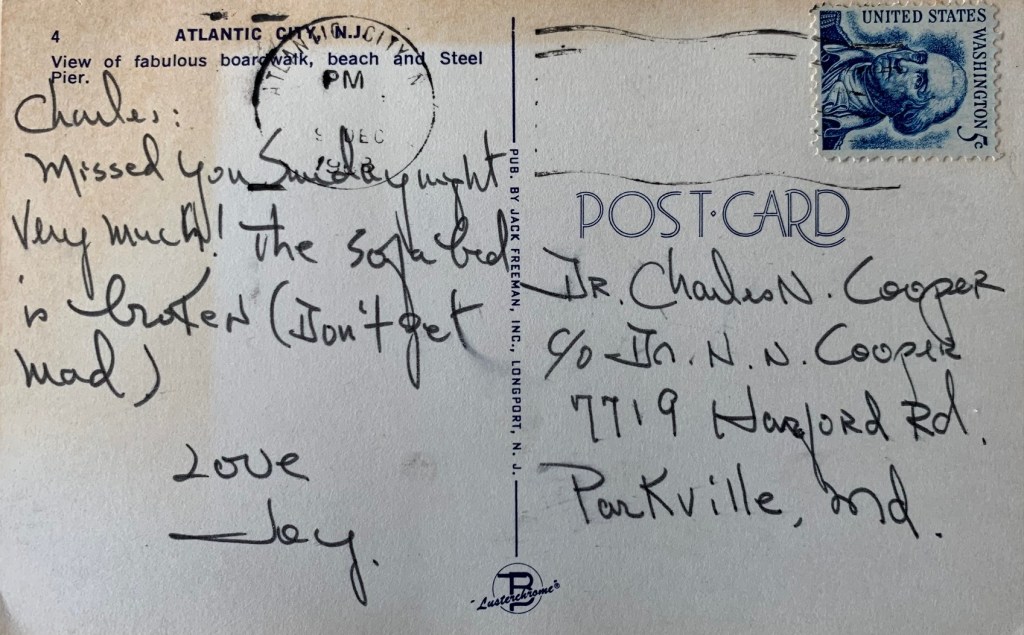 4
ATLANTIC CITY, N.J.
View of fabulous boardwalk, beach and Steel
Pier.
Charles:
Missed you Sunday night
Very much! The sofa bed
is broken (Don't get
mad)
Love
Jay.
ATLANTIC CITY, N
PM
9 DEC
PUB. BY JACK FREEMAN, INC., LONGPORT, N. J.
UNITED STATES
WASHINGTON 5c
POST·CARD
DR. Charles N. Cooper
c/o Dr. N. N. Cooper
7719 Harford Rd.
Parkville, Md.
"Lusterchrome"®